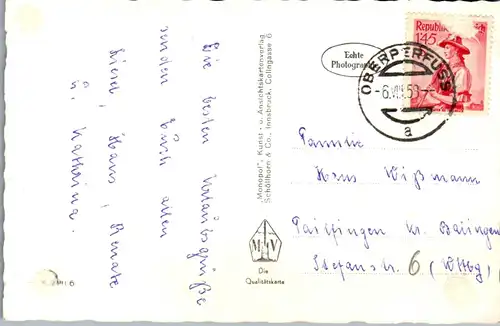 Die besten Urlaubsgrüße
senden Euch allen
Liena, Hans, Renate
u. Katharina.
"Monopol", Kunst- u. Ansichtskartenverlag
Schöllhorn & Co., Innsbruck, Colingasse 6
M V
Die
Qualitätskarte
Echte
Photographie
Republik
1'45
OBERPERFUSS
-6.VIII.58-
a
Familie
Hans Wißmann
Tailfingen Kr. Balingen
Stefanstr. 6 (Wttbg)